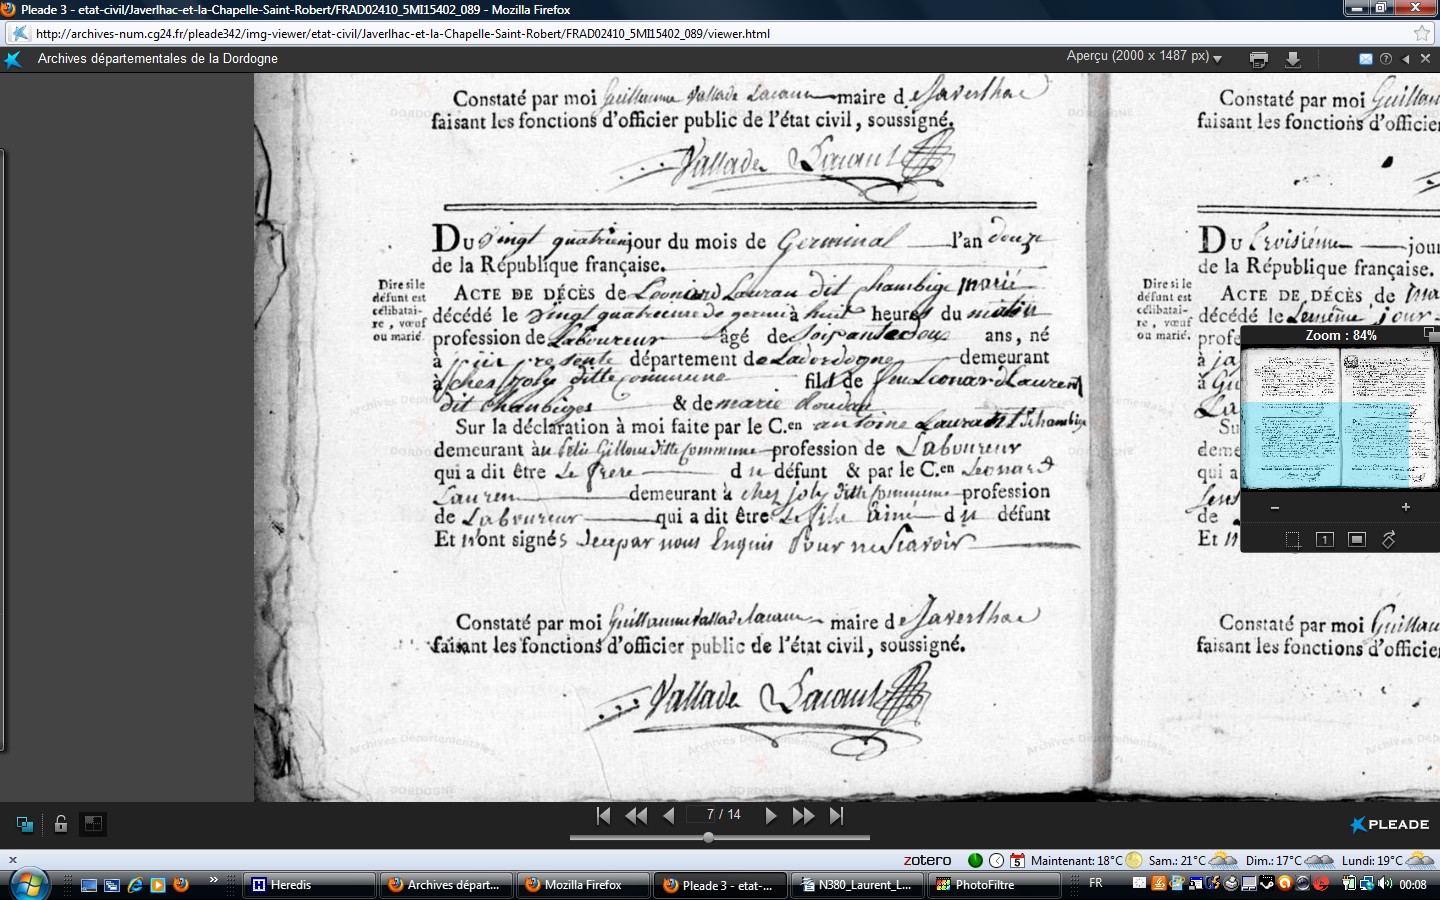 Pleade 3 - etat-civil/Javerlhac-et-la-Chapelle-Saint-Robert/FRAD02410_5MI15402_089 - Mozilla Firefox
http://archives-num.cg24.fr/pleade342/img-viewer/etat-civil/Javerlhac-et-la-Chapelle-Saint-Robert/FRAD02410_5MI15402_089/viewer.html
Archives départementales de la Dordogne
Aperçu (2000 x 1487 px)
Constaté par moi Guillaume Vallade Lacaux maire de Javerlhac
faisant les fonctions d'officier public de l'état civil, soussigné.
Vallade Lacaux
Du vingt quatrieme jour du mois de Germinal l'an douze
de la République française.
Dire si le
défunt est
célibatai-
re, vœuf
ou marié.
ACTE DE DÉCÈS de Leonard Laurau dit Chambige marié
décédé le vingt quatrieme de germi à huit heures du matin
profession de Laboureur âgé de soixante deux ans, né
à presente département de Ladordogne demeurant
à chez Joly ditte Commune fils de feu Leonard Laurent
dit Chambiges & de marie
Sur la déclaration à moi faite par le C.en antoine Laurant Chambige
demeurant au petit Gillou ditte Commune profession de Laboureur
qui a dit être Le frere du défunt & par le C.en Leonard
Lauren demeurant à chez joly ditte Commune profession
de Laboureur qui a dit être Le fils aîné du défunt
Et n'ont signés de ce par nous Enquis Pour ne Scavoir
Constaté par moi Guillaume Vallade Lacaux maire de Javerlhac
faisant les fonctions d'officier public de l'état civil, soussigné.
Vallade Lacaux
Constaté par moi Guillau
faisant les fonctions d'officie
Du troisième jou
de la République française.
Dire si le
défunt est
célibatai-
re, vœuf
ou marié.
ACTE DE DÉCÈS de
décédé le Lemême jour
profe
Su
deme
qui a
de
Et n
Constaté par moi Guillau
faisant les fonctions d'officie
Zoom : 84%
7 / 14
PLEADE
zotero Maintenant: 18°C Sam.: 21°C Dim.: 17°C Lundi: 19°C
Heredis
Archives départ...
Mozilla Firefox
Pleade 3 - etat-...
N380_Laurent_L...
PhotoFiltre
FR
00:08